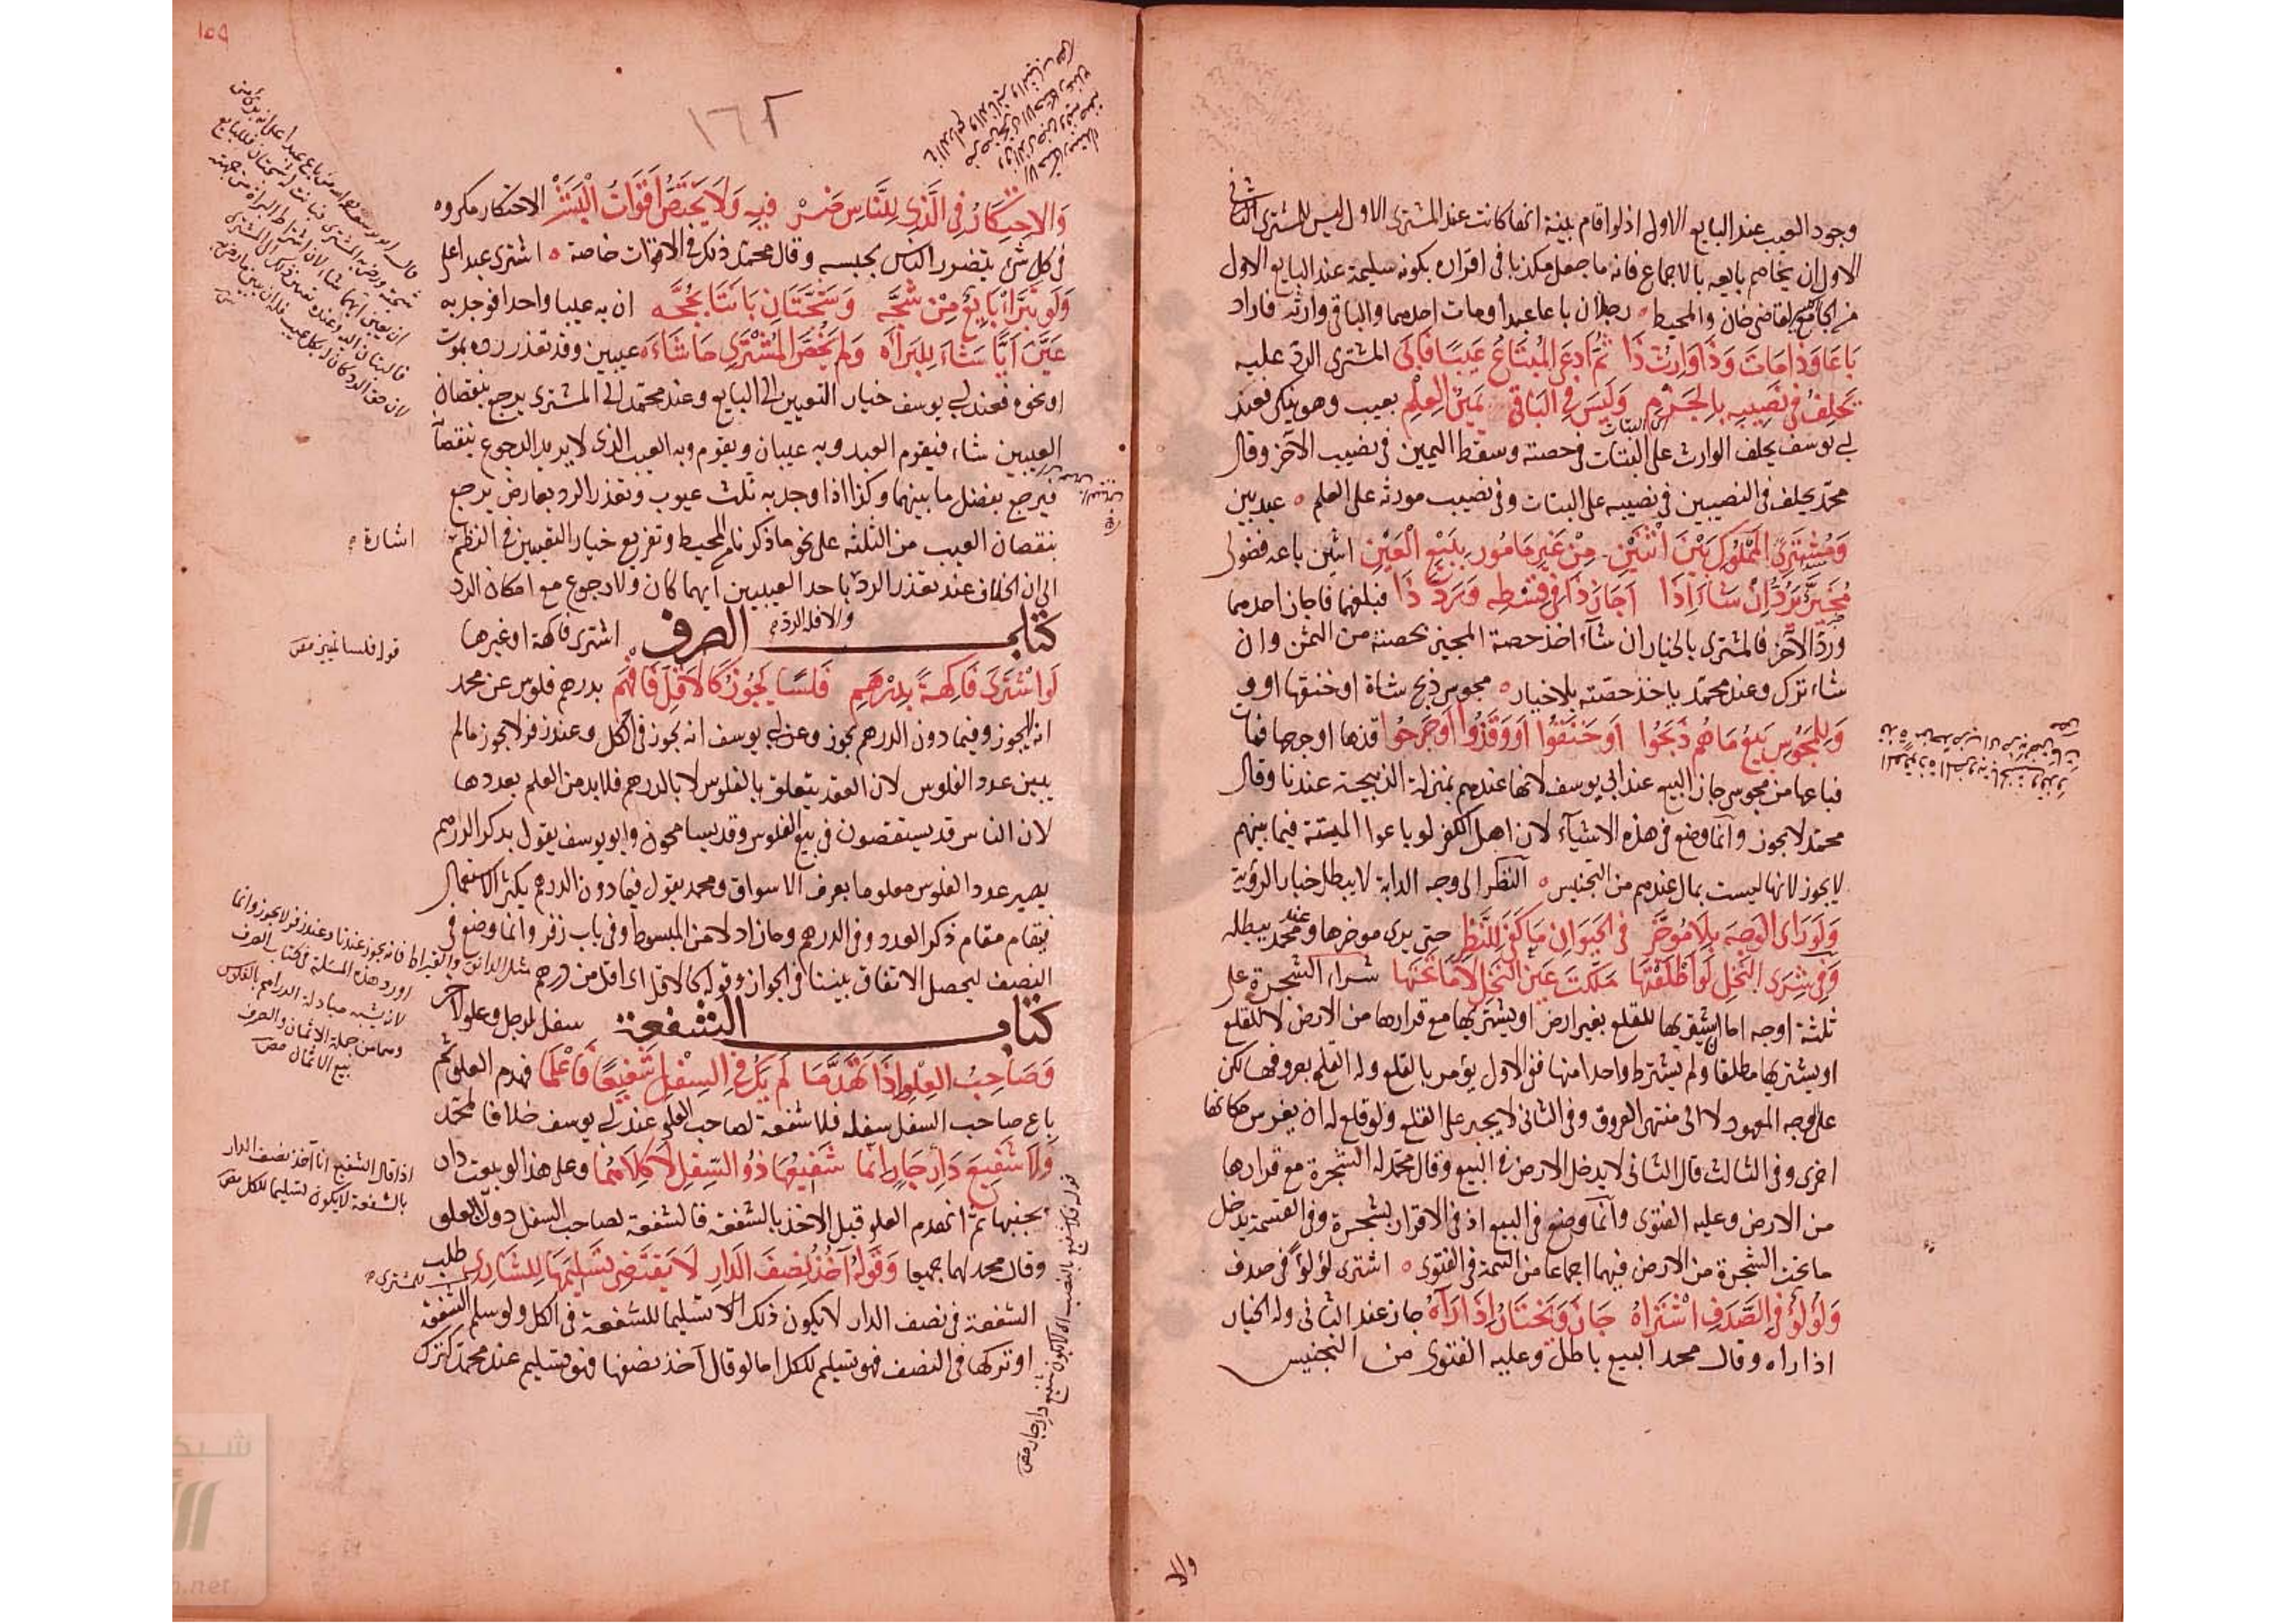 وجود العيب عند البايع الاول اذ لو اقام بينة انها كانت عند المشترى الاول ليس للمشترى الثانى
الاول ان يخاصم بايعه بالاجماع فانه ما جعل مكذبا فى اقراره بكونه سليمة عند البايع الاول
من الجامع لقاضى خان والمحيط رجلان باعا عبدا ومات احدهما والباقى وارثه فاراد
بَاعَا وَذَا مَاتَ وَذَا وَارِثُ ذَا ثُمَّ ادعَى المُبْتَاعُ عَيبًا فَابَى المشترى الردّ عليه
يَحْلِفُ فى نَصِيبِهِ بِالجَزْمِ وَلَيْسَ فِى البَاقِى يَمِينُ العِلْمِ بعيب وهو ينكر فعند
ابى يوسف يحلف الوارث على البتات فى حصته وسقط اليمين فى نصيب الآخر وقال
محمّد يحلف فى النصيبين فى نصيبه على البتات وفى نصيب مورثه على العلم عبد بين
وَمُشْتَرِى المَمْلُوكِ بَيْنَ اثْنَيْنِ مِنْ غَيْرِ مَامُورٍ بِبَيْعِ العَيْنِ اثنين باعه فضولى
مُخَيَّرٌ يَرُدُّ اِنْ شَاءَ اِذَا اَجَازَ ذَا فِى قِسْطِهِ وَرَدَّ ذَا فبلغهما فاجاز احدهما
وردّ الآخر فالمشترى بالخيار ان شآء اخذ حصة المجيز بحصته من الثمن وان
شاء ترك وعند محمّد ياخذ حصّته بلا خيار مجوس ذبح شاة او خنقها او و
وَلِلْمَجُوسِ بَيْعُ مَا هُمْ ذَبَحُوا اَوْ خَنَقُوا اَوْ وَقَذُوا اَوْ جَرَحُوا قذها او جرحها فماتت
فباعها من مجوس جاز البيع عند ابى يوسف لانها عندهم بمنزلة الذبيحة عندنا وقال
محمّد لا يجوز وانّما وضع فى هذه الاشيآء لان اهل الكفر لو باعوا الميتة فيما بينهم
لا يجوز لانها ليست بمال عندهم من التجنيس النظر الى وجه الدابة لا يبطل خيار الرؤية
وَلَو رَاى الوَجهَ بِلَا مُوَخَّرِ فى الحَيَوانِ مَا كَفَى لِلنَّظَرِ حتى يرى موخرها وعند محمّد يبطله
وَفِى شِرَى النَّخلِ لَو اَطْلَقْتَهَا مَلَكْتَ عَينَ النَّخْلِ لَا مَا تَحْتَهَا شراء الشجرة على
ثلثة اوجه اما ان يشتريها للقلع بغير ارض او يشتريها مع قرارها من الارض لا للقلع
او يشتريها مطلقا ولم يشترط واحدا منها ففى الاول يؤمر بالقلع وله القلع بعروقها لكن
على وجه المعهود لا الى منتهى العروق وفى الثانى لا يجبر على القلع ولو قلع له ان يغرس مكانها
اخرى وفى الثالث قال الثانى لا يدخل الارض فى البيع وقال محمّد له الشجرة مع قرارها
من الارض وعليه الفتوى وانّما وضع فى البيع اذ فى الاقرار بشجرة وفى القسمة يدخل
ما تحت الشجرة من الارض فيهما اجماعا من التتمة فى الفتوى اشترى لؤلؤاً فى صدف
وَلُولُؤ فى الصَّدَفِ اشْتَرَاهُ جَازَ وَيَخْتَارُ اِذَا رَآهُ جاز عند الثانى وله الخيار
اذا راه وقال محمد البيع باطل وعليه الفتوى من التجنيس
١٥٩
١٦٢
وَالاِحتِكَارُ فِى الَّذِى لِلنَّاسِ ضَرْ فِيهِ وَلَا يَخْتَصُّ اَقوَاتُ البَشَرْ الاحتكار مكروه
فى كل شئ يتضرر الناس بحبسه وقال محمّد ذلك فى الاقوات خاصة اشترى عبدا على
وَلَو تَبَرّا بَايعٌ مِنْ شَجَّه وَشَجَّتَانِ بَانَتَا بِحُجَّه ان به عيبا واحدا فوجد به
عَيَّنَ اَيًّا شَاءَ لِلبَرَاءَه وَلَم يَخُصَّ المُشْتَرِى مَا شَاءَه عيبين وقد تعذر رده بموت
او نحوه فعند ابى يوسف خيار التعيين الى البايع وعند محمّد الى المشترى يرجع بنقصان
العيبين شاء فيقوم العبد وبه عيبان ويقوم وبه العيب الذى لا يريد الرجوع بنقصانه
فيرجع بفضل ما بينهما وكذا اذا وجد به ثلث عيوب وتعذر الرد بعارض يرجع
بنقصان العيب من الثلثة على نحو ما ذكرنا من المحيط وتفريع خيار التعيين فى النظم
اشارة
الى ان الخلاف عند تعذر الردّ باحد العيبين ايهما كان ولا رجوع مع امكان الرد
والا فله الردّ
كتاب الصرف اشترى فاكهة او غيرها
قوله فلسا تمييز
لَو اشْتَرَى فَاكِهَةً بِدِرْهَمِ فَلسًا يَجُوزُ كَالاَقَلِّ فَافْهَمِ بدرهم فلوس عن محمد
انه لا يجوز وفيما دون الدرهم يجوز وعن ابى يوسف انه يجوز فى الكل وعند زفر لا يجوز ما لم
يبين عدد الفلوس لان العقد يتعلق بالفلوس لا بالدرهم فلا بد من العلم بعددها
لان الناس قد يستقصون فى بيع الفلوس وقد يسامحون وابو يوسف يقول بذكر الدرهم
يصير عدد الفلوس معلوما بعرف الاسواق ومحمد يقول فيما دون الدرهم يكثر الاستعمال
فيقام مقام ذكر العدد وفى الدرهم وما زاد لا من المبسوط وفى باب زفر وانما وضع فى
النصف ليحصل الاتفاق بيننا فى الجواز وقوله كالاقل اى اقل من درهم
مثل الدانق والقيراط فانه يجوز عندنا وعند زفر لا يجوز وانما
اورد هذه المسئلة فى كتاب الصرف
لانه يشبه مبادلة الدراهم بالفلوس
وهما من جملة الاثمان والصرف
بيع الاثمان
كتاب الشفعة سفل لرجل وعلو لآخر
وَصَاحِبُ العِلْوِ اِذَا تَهَدَّمَا لَم يَكُ فِى السِفلِ شَفِيعًا فَاعْلَمَا فهدم العلو ثم
باع صاحب السفل سفله فلا شفعة لصاحب العلو عند ابى يوسف خلافا لمحمّد
وَلَا شَفِيعَ دَارِ جَارٍ اِنَّمَا شَفِيعُهَا ذُو السِّفلِ لَا كِلَاهُمَا وعلى هذا لو بيعت دار
اذا قال الشفيع انا آخذ نصف الدار
بالشفعة لا يكون تسليما للكل
بجنبها ثمّ انهدم العلو قبل الاخذ بالشفعة فالشفعة لصاحب السفل دون العلو
وقال محمد لهما جميعا وَقَولُهُ آخُذُ نِصفَ الدَارِ لَا يَقتَضِى تَسلِيمَهَا لِلشَّارِى طلب
للمشترى
الشفعة فى نصف الدار لا يكون ذلك تسليما للشفعة فى الكل ولو سلم الشفعة
او تركها فى النصف فهو تسليم للكل اما لو قال آخذ نصفها فهو تسليم عند محمّد كترك